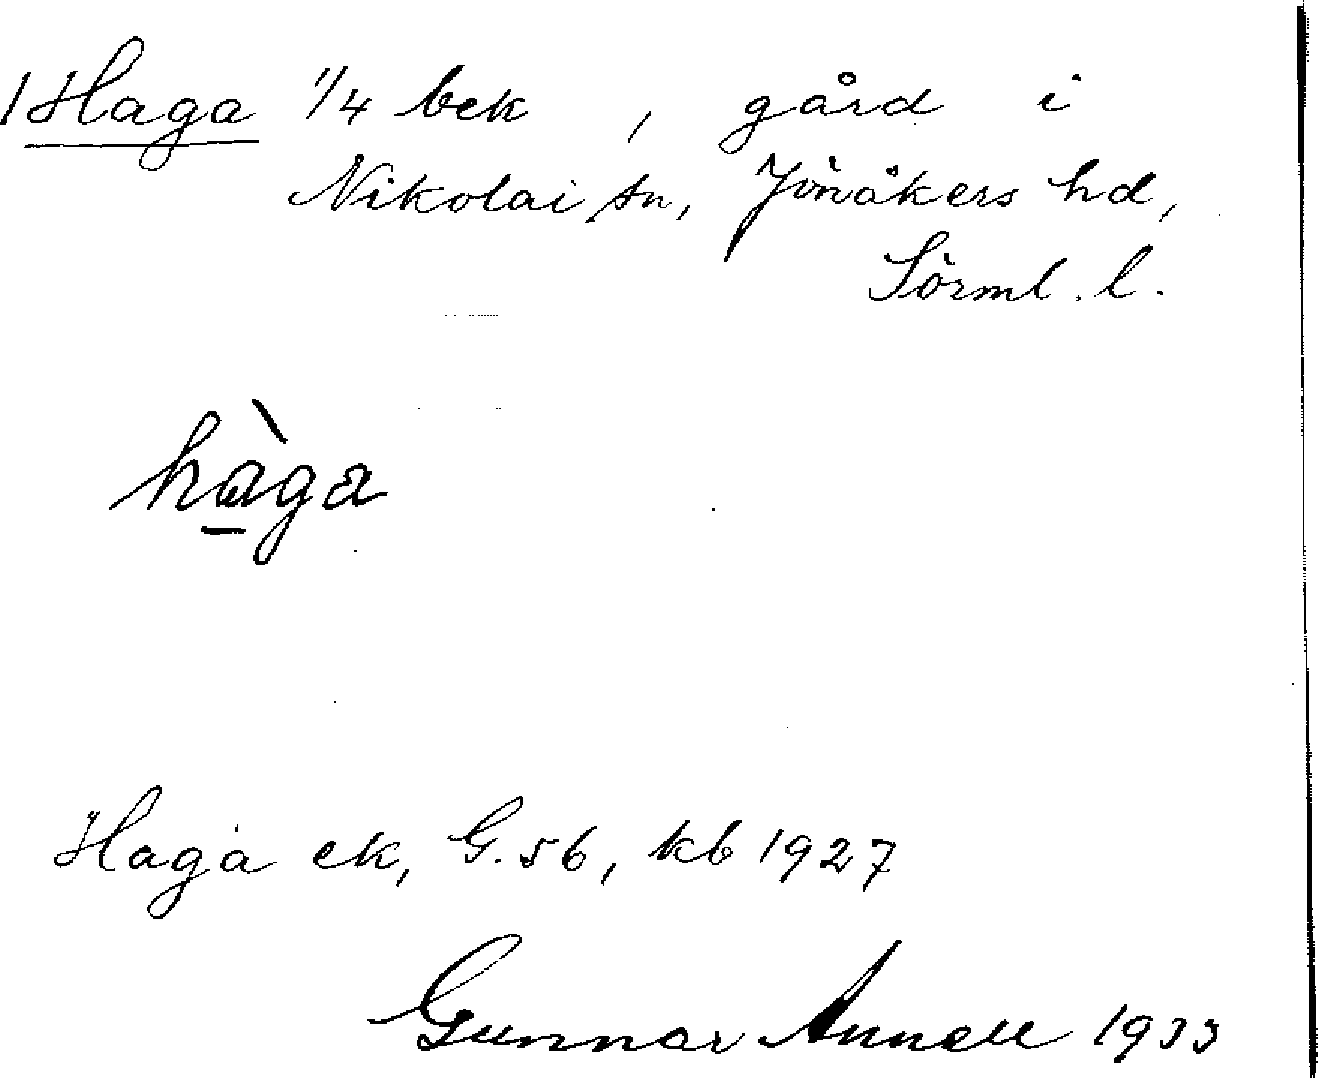 1 Haga 1/4 bek , gård i
Nikolai sn, Jönåkers hd,
Sörml. l.
hàga
Haga ek, G. 56, kb 1927
Gunnar Annell 1933